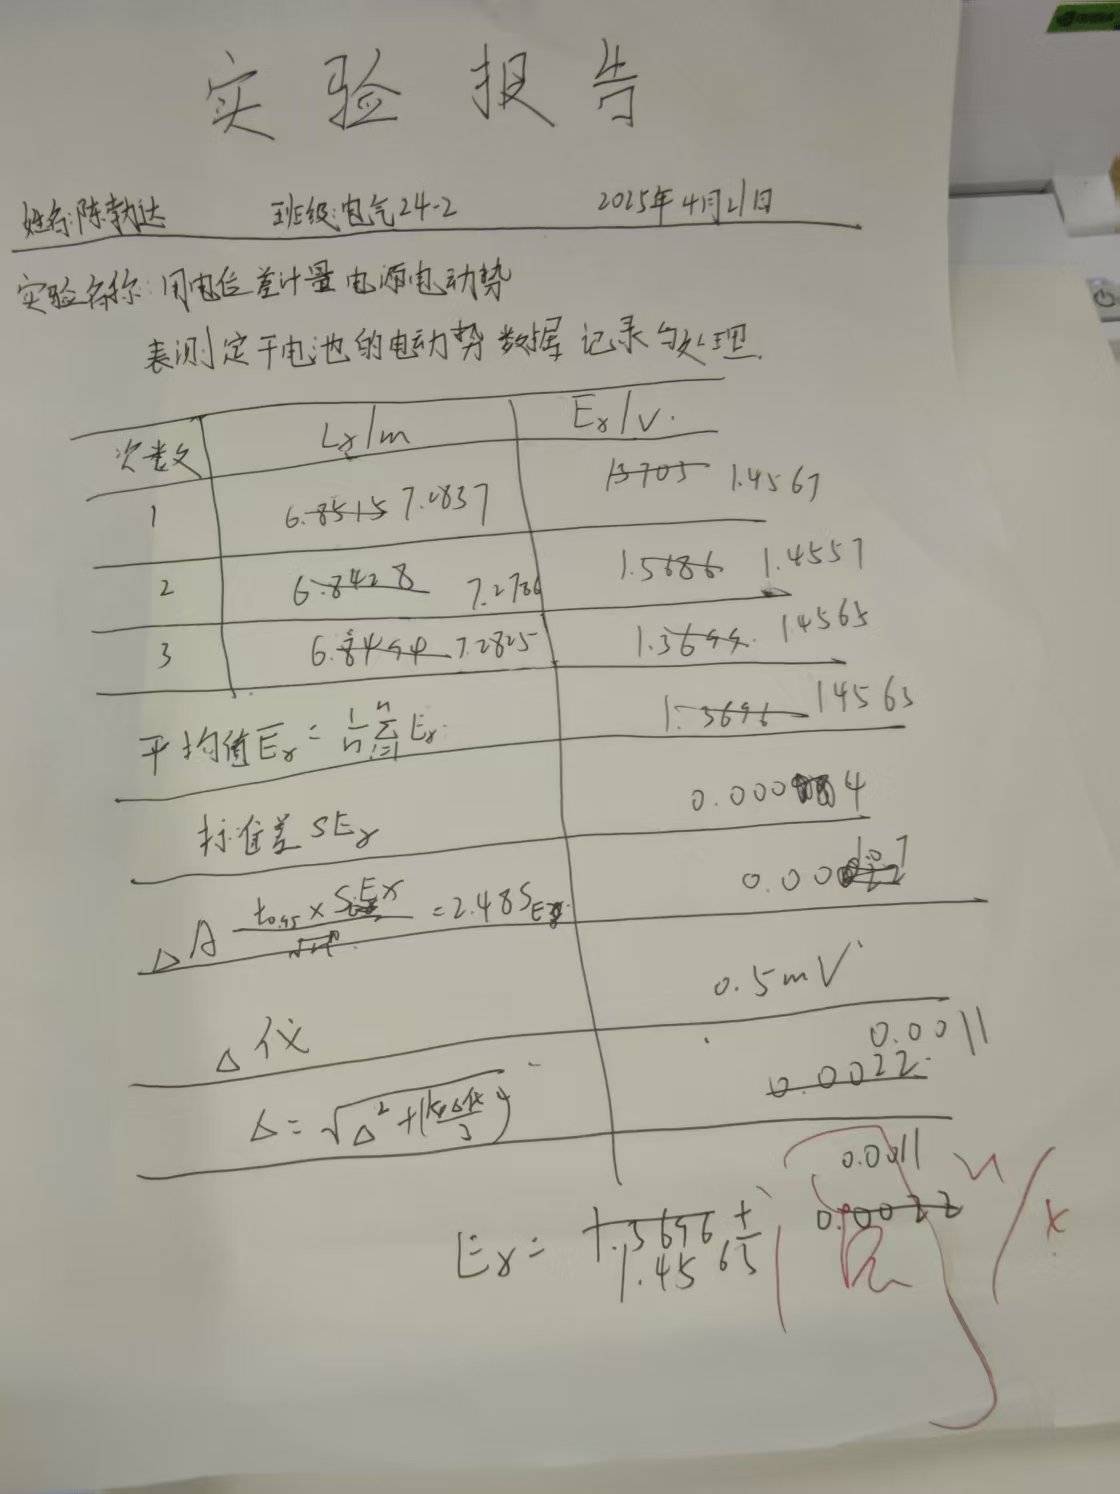 实验报告
姓名:陈勃达 班级:电气24-2 2025年4月21日
实验名称:用电位差计量电源电动势
表测定干电池的电动势数据记录与处理
次数 Lx/m Ex/V.
1 6.8515 7.2837 13705 1.4567
2 6.8428 7.2786 1.5686 1.4557
3 6.8494 7.2825 1.3699. 1.4565
平均值Ex = 1/n Σ Ex n i=1 1.3696 1.4563
标准差SEx 0.000 4
ΔA t0.95 × SEx = 2.48SEx 0.00
Δ仪 0.5mV
0.0011
Δ = √Δ²+( )² 0.0022
0.0011
Ex = 1.3696 ± 0.0022
1.4563